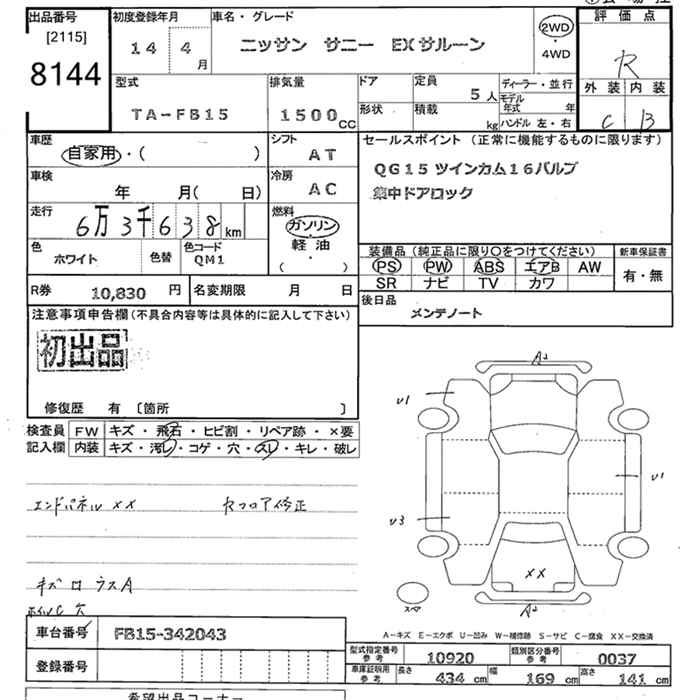 出品番号
[2115]
8144
初度登録年月
14 4月
車名・グレード
ニッサン サニー EXサルーン
2WD
・
4WD
評価点
R
外装 内装
C B
型式
TA-FB15
排気量
1500cc
ドア
形状
定員
5人
積載
kg
ディーラー・並行
モデル年式 年
ハンドル 左・右
車歴
自家用・( )
シフト
AT
車検
年 月( 日)
冷房
AC
走行
6万3千638km
燃料
ガソリン
軽油
( ・ )
色
ホワイト
色替
色コード
QM1
セールスポイント(正常に機能するものに限ります)
QG15 ツインカム16バルブ
集中ドアロック
装備品(純正品に限り○をつけてください)
PS PW ABS エアB AW
SR ナビ TV カワ
新車保証書
有・無
R券 10,830 円
名変期限 月 日
後日品
メンテノート
注意事項申告欄(不具合内容等は具体的に記入して下さい)
初出品
修復歴 有 〔箇所 〕
検査員
記入欄
FW キズ・飛石・ヒビ割・リペア跡・×要
内装 キズ・汚レ・コゲ・穴・スレ・キレ・破レ
エンドパネル XX
キズ
A2
U1
U1
U3
XX
A2
スペア
A-キズ E-エクボ U-凹み W-補修跡 S-サビ C-腐食 XX-交換済
車台番号 FB15-342043
登録番号
型式指定番号
参考
10920
類別区分番号
参考
0037
車庫証明用
参考
長さ 434 cm
幅 169 cm
高さ 141 cm
希望出品コーナー